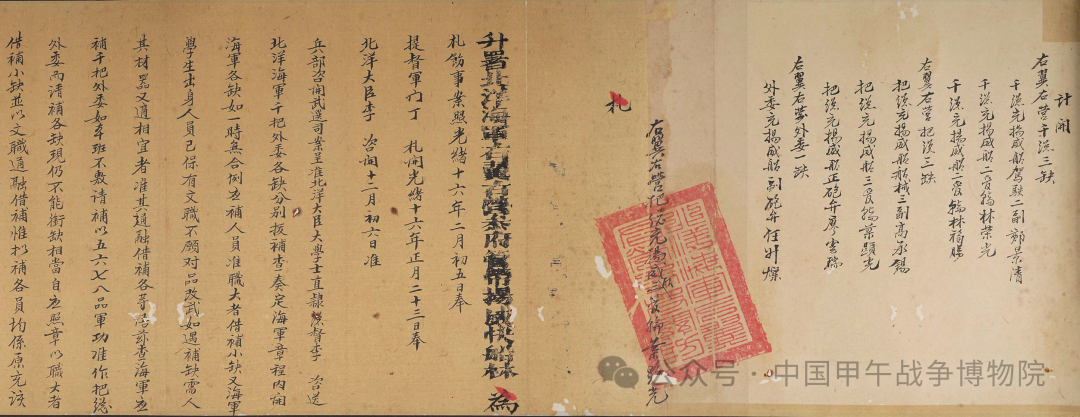 計開
右翼右營千總三缺
千總充揚威船駕駛二副鄭景清
千總充揚威船二管輪林榮光
千總充揚威船二管輪林福
右翼右營把總三缺
把總充揚威船船械三副高承錫
把總充揚威船三管輪葉顯光
把總充揚威船正砲弁廖雲瑞
右翼右營外委一缺
外委充揚威船副砲弁任燦
札
右翼右營把總充揚威船三管輪葉顯光
升署北洋海軍右翼右營參府管帶揚威快船林 為
札飭事業照光緒十六年二月初五日奉
提督軍門丁 札開光緒十六年正月二十三日奉
北洋大臣李 咨開十二月初六日准
兵部咨開武選司案呈准北洋大臣大學士直隸總督李 咨送
北洋海軍千把外委各缺分別拔補查奏定海軍章程內開
海軍各缺如一時無合例应補人員准職大者借補小缺又海軍
學生出身人員已保有文職不願对品改武如遇補缺需人
其材器又適相宜者准其通融借補各等語茲查海軍应
補千把外委如本班不敷請補以五六七八品軍功准作把總
外委而請補各缺現仍不能銜缺相當自应照章以職大者
借補小缺並以文職通融借補惟拟補各員均係原充該
公众号·中国甲午战争博物院